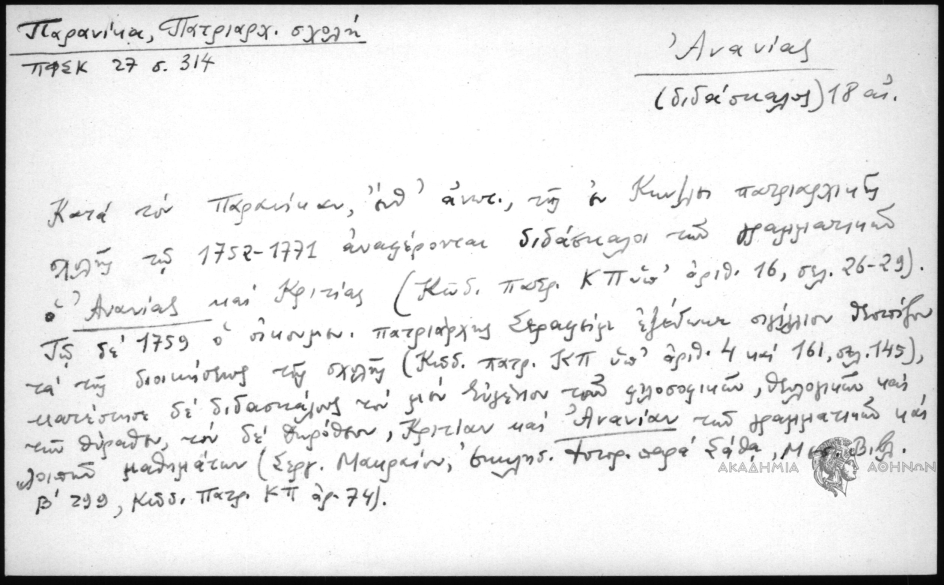 Παρανίκα, Πατριαρχ. σχολή
ΠΦΣΚ 27 σ. 314
Ἀνανίας
(διδάσκαλος) 18 αἰ.
Κατά τόν Παρανίκαν, ἔνθ' ἀνωτ., τῆς ἐν Κων/λει πατριαρχικῆς
σχολῆς τῷ 1752-1771 ἀναφέρονται διδάσκαλοι τῶν γραμματικῶν
ὁ Ἀνανίας καί Κριτίας (Κῶδ. πατρ. ΚΠ ὑπ' ἀριθ. 16, σελ. 26-29).
Τῷ δέ 1759 ὁ οἰκουμεν. πατριάρχης Σεραφείμ ἐξέδωκε σιγίλλιον θεσπίζον
τά τῆς διοικήσεως τῆς σχολῆς (Κῶδ. πατρ. ΚΠ ὑπ' ἀριθ. 4 καί 161, σελ. 145),
κατέστησε δέ διδασκάλους τόν μέν Εὐγένιον τῶν φιλοσοφικῶν, θεολογικῶν καί
τῶν θύραθεν, τόν δέ Κριτίαν καί Ἀνανίαν τῶν γραμματικῶν καί
λοιπῶν μαθημάτων (Σεργ. Μακραίου, ἐκκλησ. ἱστορ. παρά Σάθᾳ, Μεσ. Βιβλ.
Β' 299, Κῶδ. Πατρ. ΚΠ ἀρ. 74).
ΑΚΑΔΗΜΙΑ ΑΘΗΝΩΝ